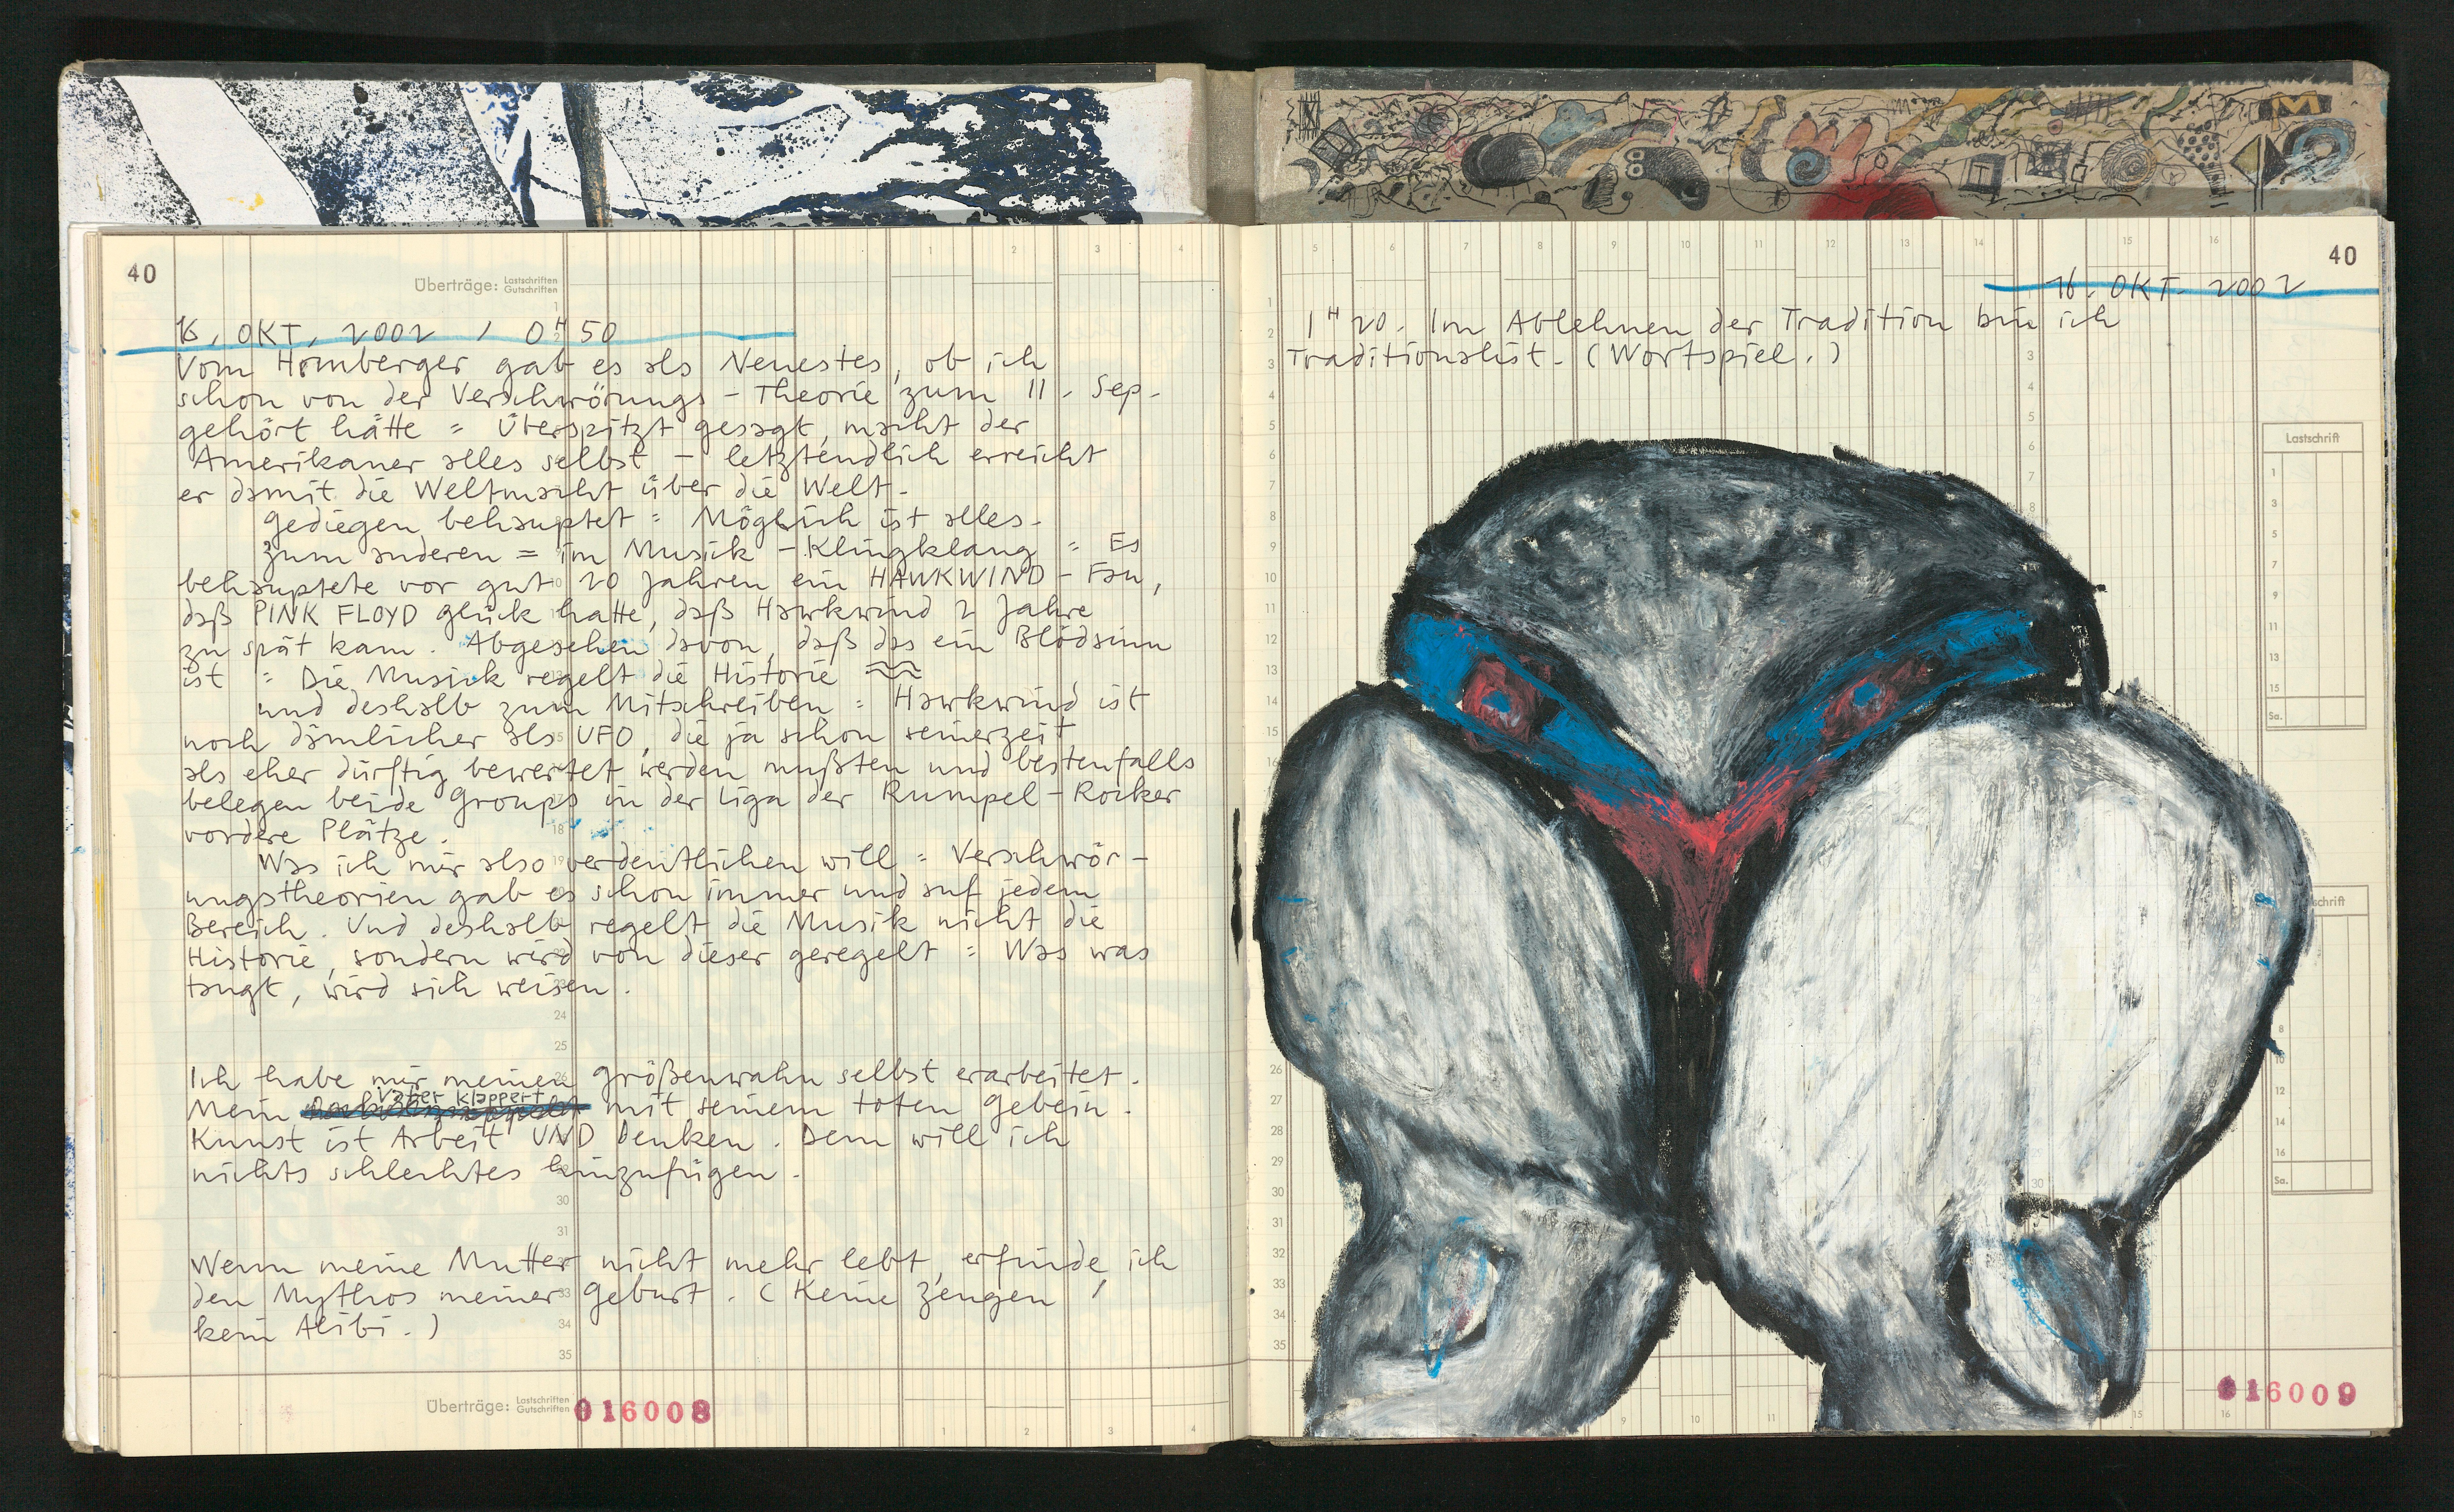 40
Überträge: Lastschriften
Gutschriften
16. OKT. 2002 / 0 H 50
Vom Homberger gab es als Neuestes, ob ich
schon von der Verschwörungs-Theorie zum 11. Sep.
gehört hätte = Überspitzt gesagt, macht der
Amerikaner alles selbst – letztendlich erreicht
er damit die Weltmacht über die Welt.
Gediegen behauptet = Möglich ist alles.
Zum anderen = im Musik-Klingklang = Es
behauptete vor gut 20 Jahren ein HAWKWIND-Fan,
daß PINK FLOYD glück hatte, daß Hawkwind 2 Jahre
zu spät kam. Abgesehen davon, daß das ein Blödsinn
ist = Die Musik regelt die Historie
und deshalb zum Mitschreiben = Hawkwind ist
noch dämlicher als UFO, die ja schon seinerzeit
als eher dürftig bewertet werden mußten und bestenfalls
belegen beide Groups in der Liga der Rumpel-Rocker
vordere Plätze.
Was ich mir also verdeutlichen will = Verschwör-
ungstheorien gab es schon immer und auf jedem
Bereich. Und deshalb regelt die Musik nicht die
Historie, sondern wird von dieser geregelt = Was was
taugt, wird sich weisen.
Ich habe mir meinen Größenwahn selbst erarbeitet.
Vater klappert
Mein mit seinem toten Gebein.
Kunst ist Arbeit UND Denken. Dem will ich
nichts schlechtes hinzufügen.
Wenn meine Mutter nicht mehr lebt, erfinde ich
den Mythos meiner Geburt. (Keine Zeugen,
kein Alibi.)
Überträge: Lastschriften
Gutschriften
016008
40
16. OKT. 2002
1 H 20. Im Ablehnen der Tradition bin ich
Traditionalist. (Wortspiel.)
Lastschrift
Sa.
schrift
Sa.
016009